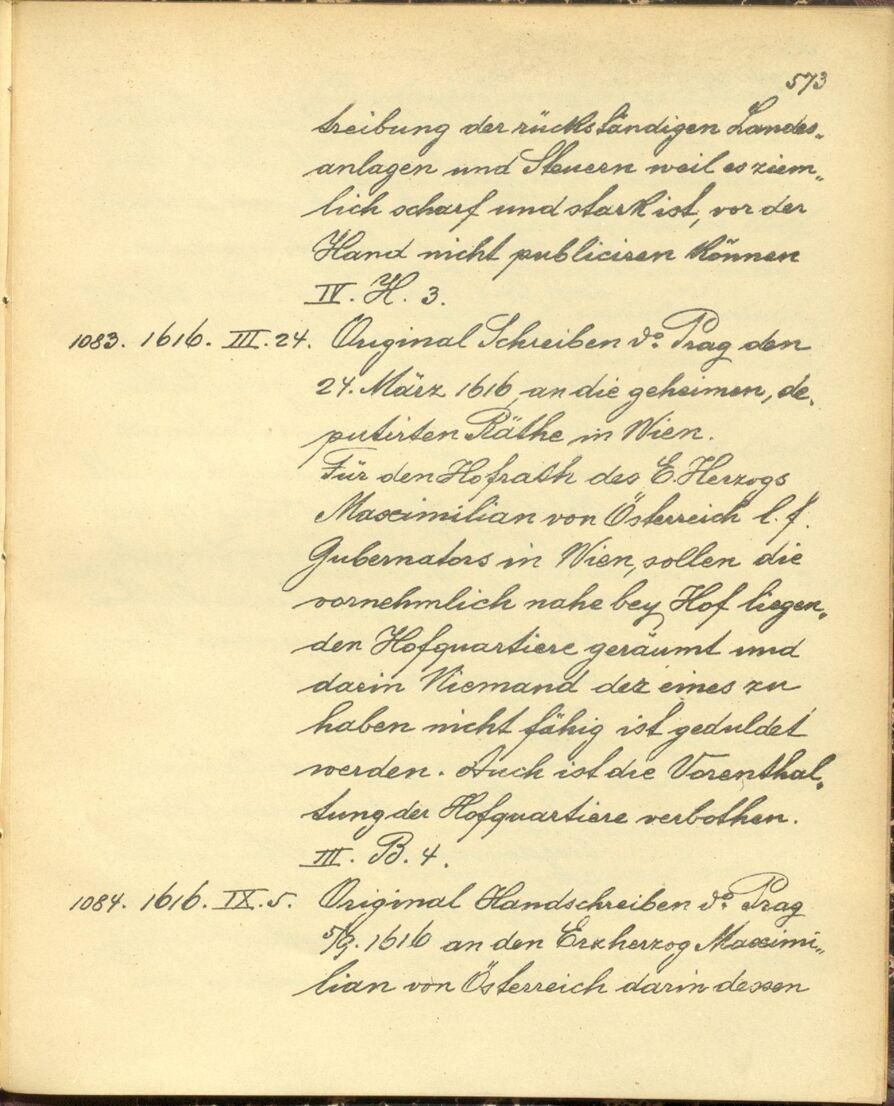 573
treibung der rückständigen Landes„
anlagen und Steuern weil es ziem„
lich scharf und stark ist, vor der
Hand nicht publiciren können
IV. H. 3.
1083. 1616. III. 24. Original Schreiben do Prag den
24. März 1616 an die geheimen, de„
putirten Räthe in Wien.
Für den Hofrath des E. Herzogs
Maximilian von Österreich l. f.
Gubernators in Wien, sollen die
vornehmlich nahe bey Hof liegen„
den Hofquartiere geräumt und
darin Niemand der eines zu
haben nicht fähig ist geduldet
werden. Auch ist die Vorenthal„
tung der Hofquartiere verbothen.
III. B. 4.
1084. 1616. IX. 5. Original Handschreiben do Prag
5/9. 1616 an den Erzherzog Maximi„
lian von Österreich darin dessen